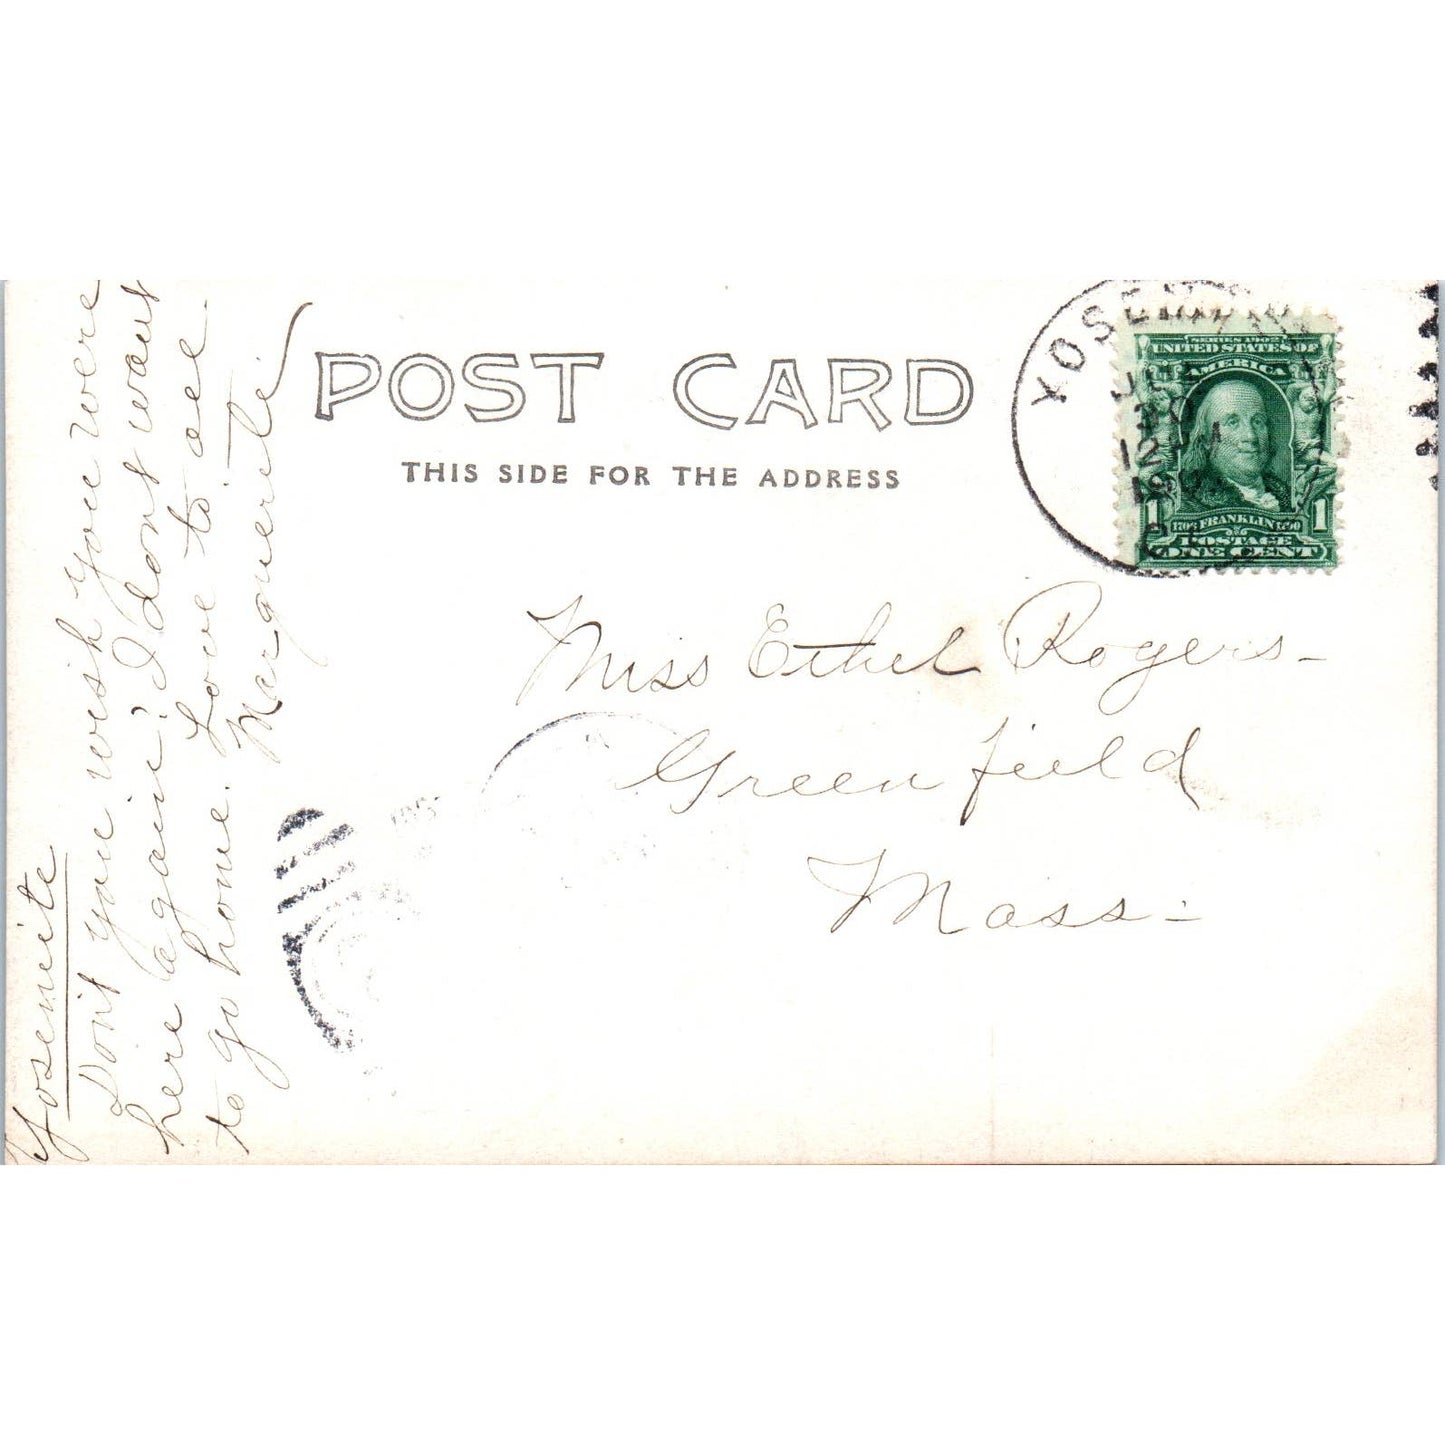 POST CARD
THIS SIDE FOR THE ADDRESS
YOSEMITE
30
12 M
SERIES 1902
UNITED STATES OF
AMERICA
1 1
1706 FRANKLIN 1790
POSTAGE
ONE CENT
Miss Ethel Rogers-
Greenfield
Mass-
Yosemite
Don't you wish you were
here again? I don't want
to go home. Love to all.
Marguerite